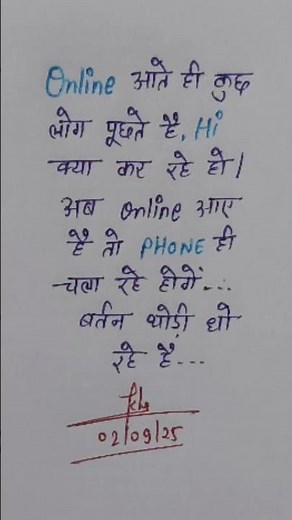 Online आते ही कुछ
लोग पूछते है, Hi
क्या कर रहे हो।
अब online आए
है तो PHONE ही
चला रहे होगें...
बर्तन थोड़ी धो
रहे हैं...
02/09/25